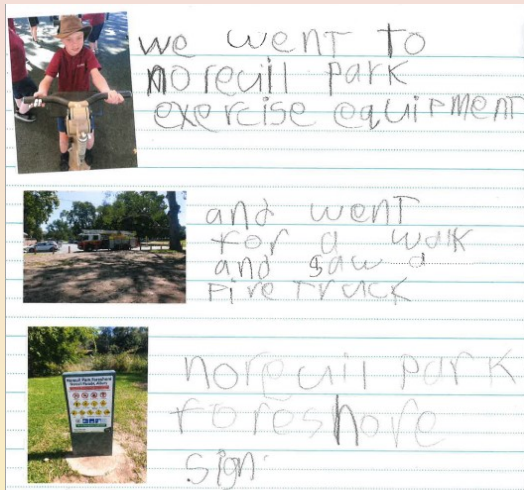 we went to
noreuill park
exercise equipment
and went
for a walk
and saw a
fire truck
noreuil park
foreshore
sign
Noreuil Park Foreshore